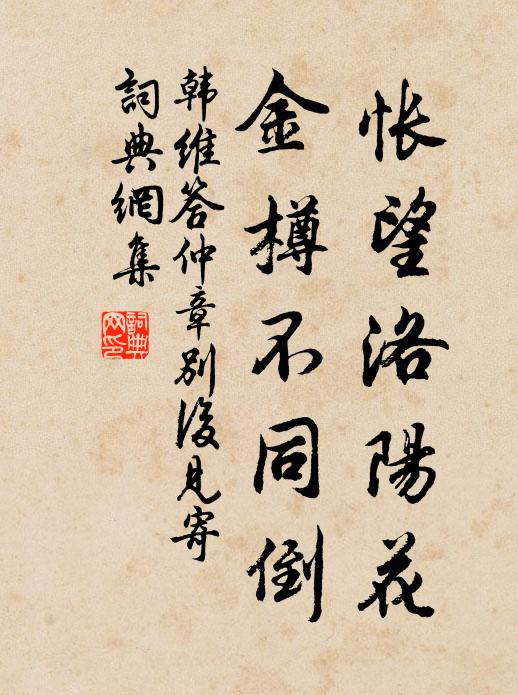 悵望洛陽花
金樽不同倒
韩維答仲章别後見寄
詞典網集
詞典
网印